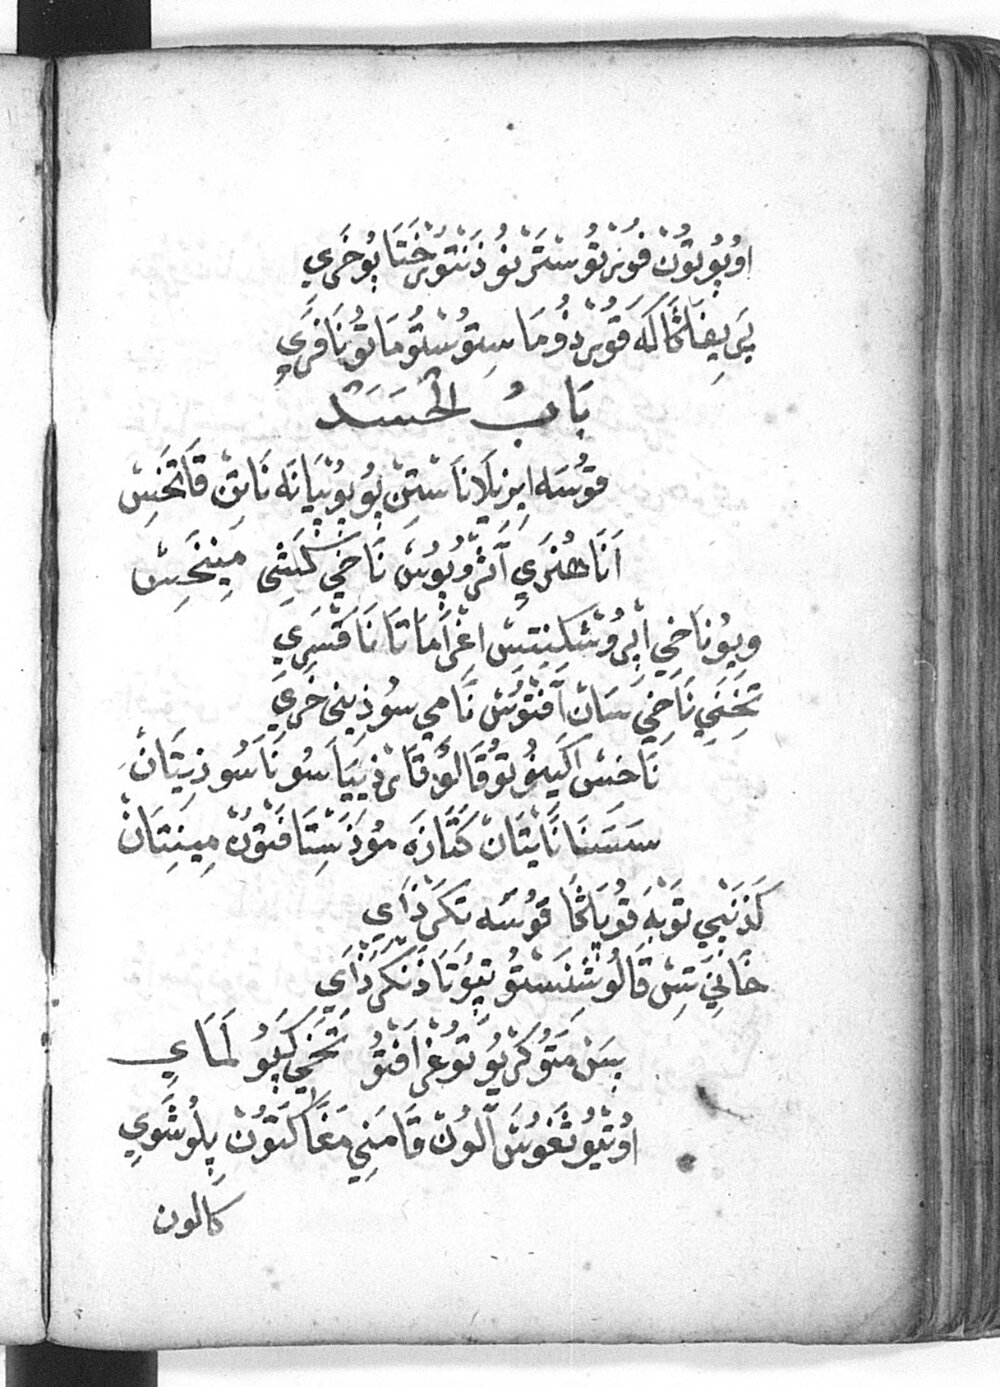 اوُپُوتُونْ فُورْتُوسْتَرْنُو ذَنْتُورْخَتَا پُوخَرَي
يَرِيفَاكَا كَه قُورْدُومَا سِتُوسْتُومَاتُونَا فَرَي
بَابُ الْحَسَدْ
قُوسَه اِيزِيلَانَا سْتِنْ پُوپُوپْيَانَه نَاتِنْ قَاتَخِسْ
اَنَا هُنَرَي آنْثْرُوپُوسْ نَاخِي كَشِي مِينَخِسْ
وِيوُنَاخِي اِپِرُوشْكِنِتِسْ اِغْرَامَاتَا نَا قَسَرَي
تَخَنِي نَاخِي سَانْ آفْتُوسْ نَامِي سُوذِينِي خَرَي
نَاخَسْ اَكِينُوتُو قَالُو قَارْذِيَيَاسُو نَاسُوذِيتَانْ
سَسَنَا نَايْتَانْ كَتَارَه مُوذَسْتَا فْتُونْ مِينِتَانْ
كَذَنْبِي تَوْبَه قُوبَاكَا قُوسَه تَكَرْذَايَ
خَانِي تِسْ قَالُوشِنَسْتُو پِيُوتَا ذَنْكَرْذَايَ
بِسَنْ مَتُوكَرْيُو تُوغْرَافْتُو تَخَي كَپُو لَمَايَ
اوُتْيُو تَغُوسْ آلُونْ قَامَنِي مَغَاكَتُونْ پِلُوشَوِي
كالون